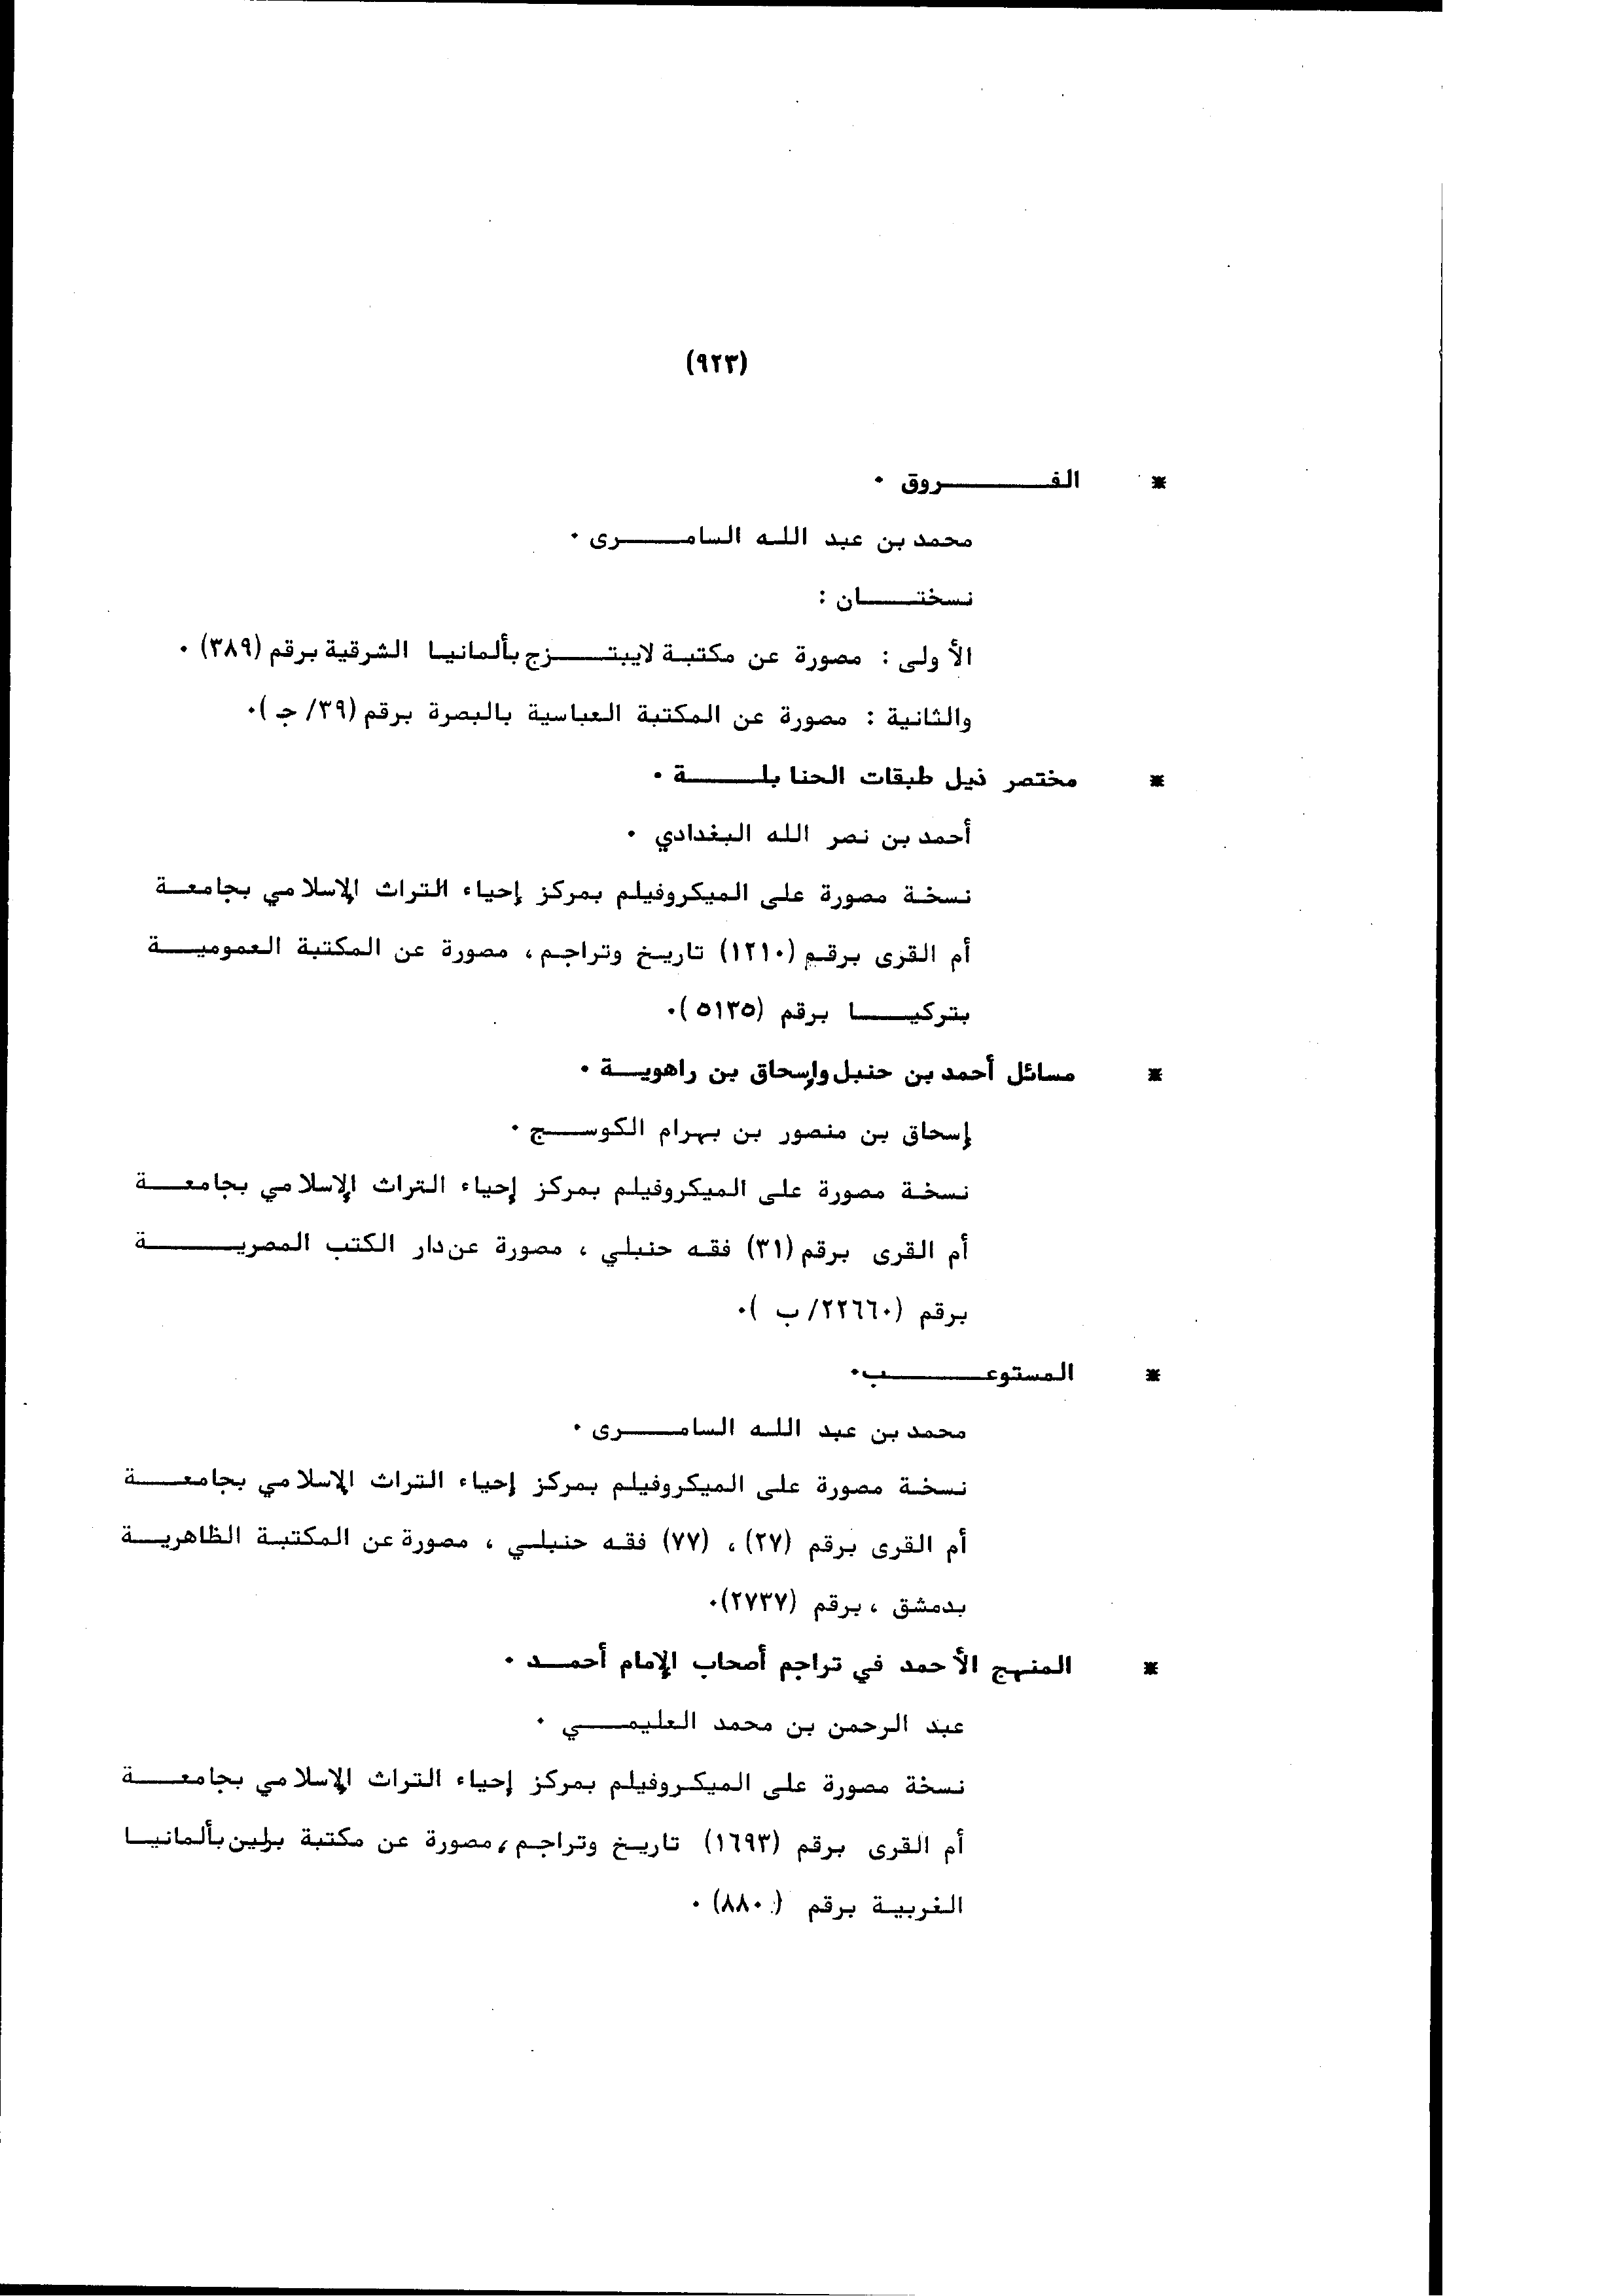 (٩٢٣)
* الفروق .
محمد بن عبد الله السامرى .
نسختان :
الأولى : مصورة عن مكتبة لايبتزج بألمانيا الشرقية برقم (٣٨٩) .
والثانية : مصورة عن المكتبة العباسية بالبصرة برقم (٣٩/ ج ).
* مختصر ذيل طبقات الحنابلة .
أحمد بن نصر الله البغدادي .
نسخة مصورة على الميكروفيلم بمركز إحياء التراث الإسلامي بجامعة
أم القرى برقم (١٢١٠) تاريخ وتراجم ، مصورة عن المكتبة العمومية
بتركيا برقم (٥١٣٥ ).
* مسائل أحمد بن حنبل وإسحاق بن راهوية .
إسحاق بن منصور بن بهرام الكوسج .
نسخة مصورة على الميكروفيلم بمركز إحياء التراث الإسلامي بجامعة
أم القرى برقم (٣١) فقه حنبلي ، مصورة عن دار الكتب المصرية
برقم (٢٢٦٦٠/ ب ).
* المستوعب.
محمد بن عبد الله السامرى .
نسخة مصورة على الميكروفيلم بمركز إحياء التراث الإسلامي بجامعة
أم القرى برقم (٢٧) ، (٧٧) فقه حنبلي ، مصورة عن المكتبة الظاهرية
بدمشق ، برقم (٢٧٣٧).
* المنهج الأحمد في تراجم أصحاب الإمام أحمد .
عبد الرحمن بن محمد العليمي .
نسخة مصورة على الميكروفيلم بمركز إحياء التراث الإسلامي بجامعة
أم القرى برقم (١٦٩٣) تاريخ وتراجم ، مصورة عن مكتبة برلين بألمانيا
الغربية برقم (٨٨٠) .